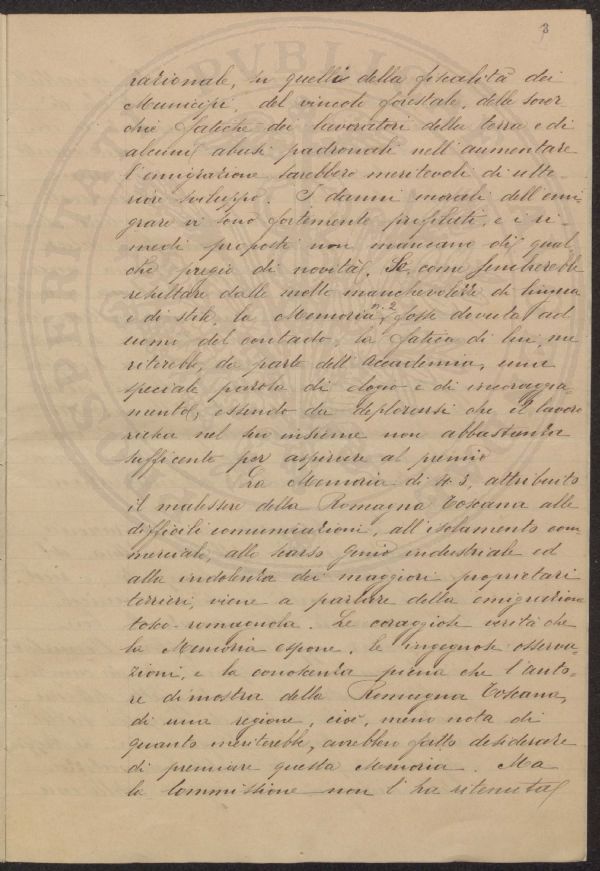 3
razionale, su quelli della fiscalità dei
Municipi, del vincolo forestale, delle sover
chie fatiche dei lavoratori della terra e di
alcuni abusi padronali nell'aumentare
l'emigrazione sarebbero meritevoli di ulte-
riore sviluppo. I danni morali dell'emi-
grare vi sono fortemente e i ri-
medi proposti non mancano di qual
che pregio di novità. Se, come sembrerebbe
resultare dalle molte manchevolezze di lingua
e di stile, la Memoria n. 2 fosse dovuta ad
uomo del contado, la fatica di lui, me
riterebbe, da parte dell'Accademia, una
speciale parola di elogio e di incoraggia-
mento, essendo da deplorarsi che il lavoro
nel suo insieme non abbastanza
sufficente per aspirare al premio
La Memoria di N. 3, attribuito
il malessere della Romagna Toscana alle
difficili comunicazioni, all'isolamento com
merciale, allo scarso genio industriale ed
alla indolenza dei maggiori proprietari
terrieri, viene a parlare della emigrazione
tosco-romagnola. Le coraggiose verità che
la Memoria espone, le ingegnose osserva-
zioni, e la conoscenza piena che l'auto-
re dimostra della Romagna Toscana,
di una regione, cioè, meno nota di
quanto meriterebbe, avrebbero fatto desiderare
di premiare questa Memoria. Ma
la Commissione non l'ha ritenuta